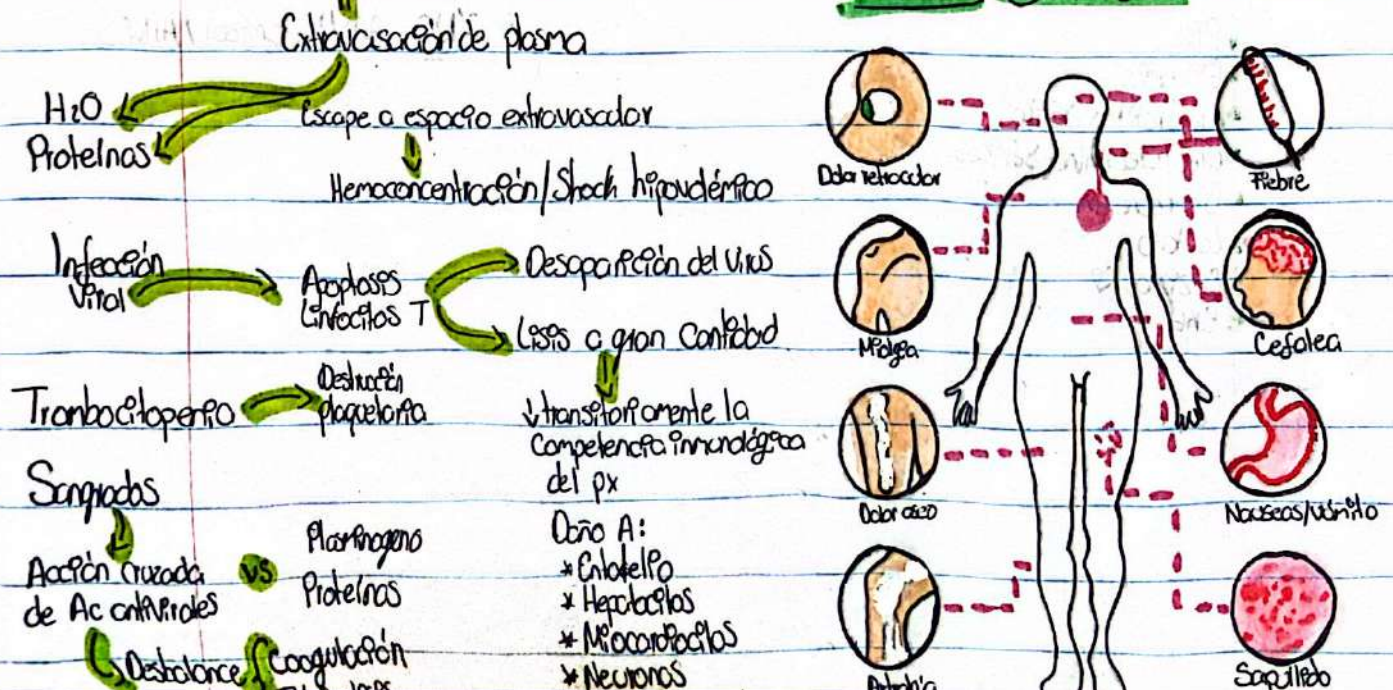 Extravasación de plasma
H2O
Proteínas
Escape a espacio extravascular
Hemoconcentración/Shock hipovolémico
Infección
Viral
Apoptosis
Linfocitos T
Desaparición del virus
Lisis a gran cantidad
↓ transitoriamente la
competencia inmunológica
del px
Trombocitopenia
Destrucción
plaquetaria
Sangrados
Acción cruzada
de Ac antivirales
vs
Plasminogeno
Proteínas
Desbalance
Coagulación
Daño A:
* Endotelio
* Hepatocitos
* Miocardiocitos
* Neuronas
Dolor retroocular
Mialgia
Dolor oseo
Fiebre
Cefalea
Nauseas/vómito
Sarpullido